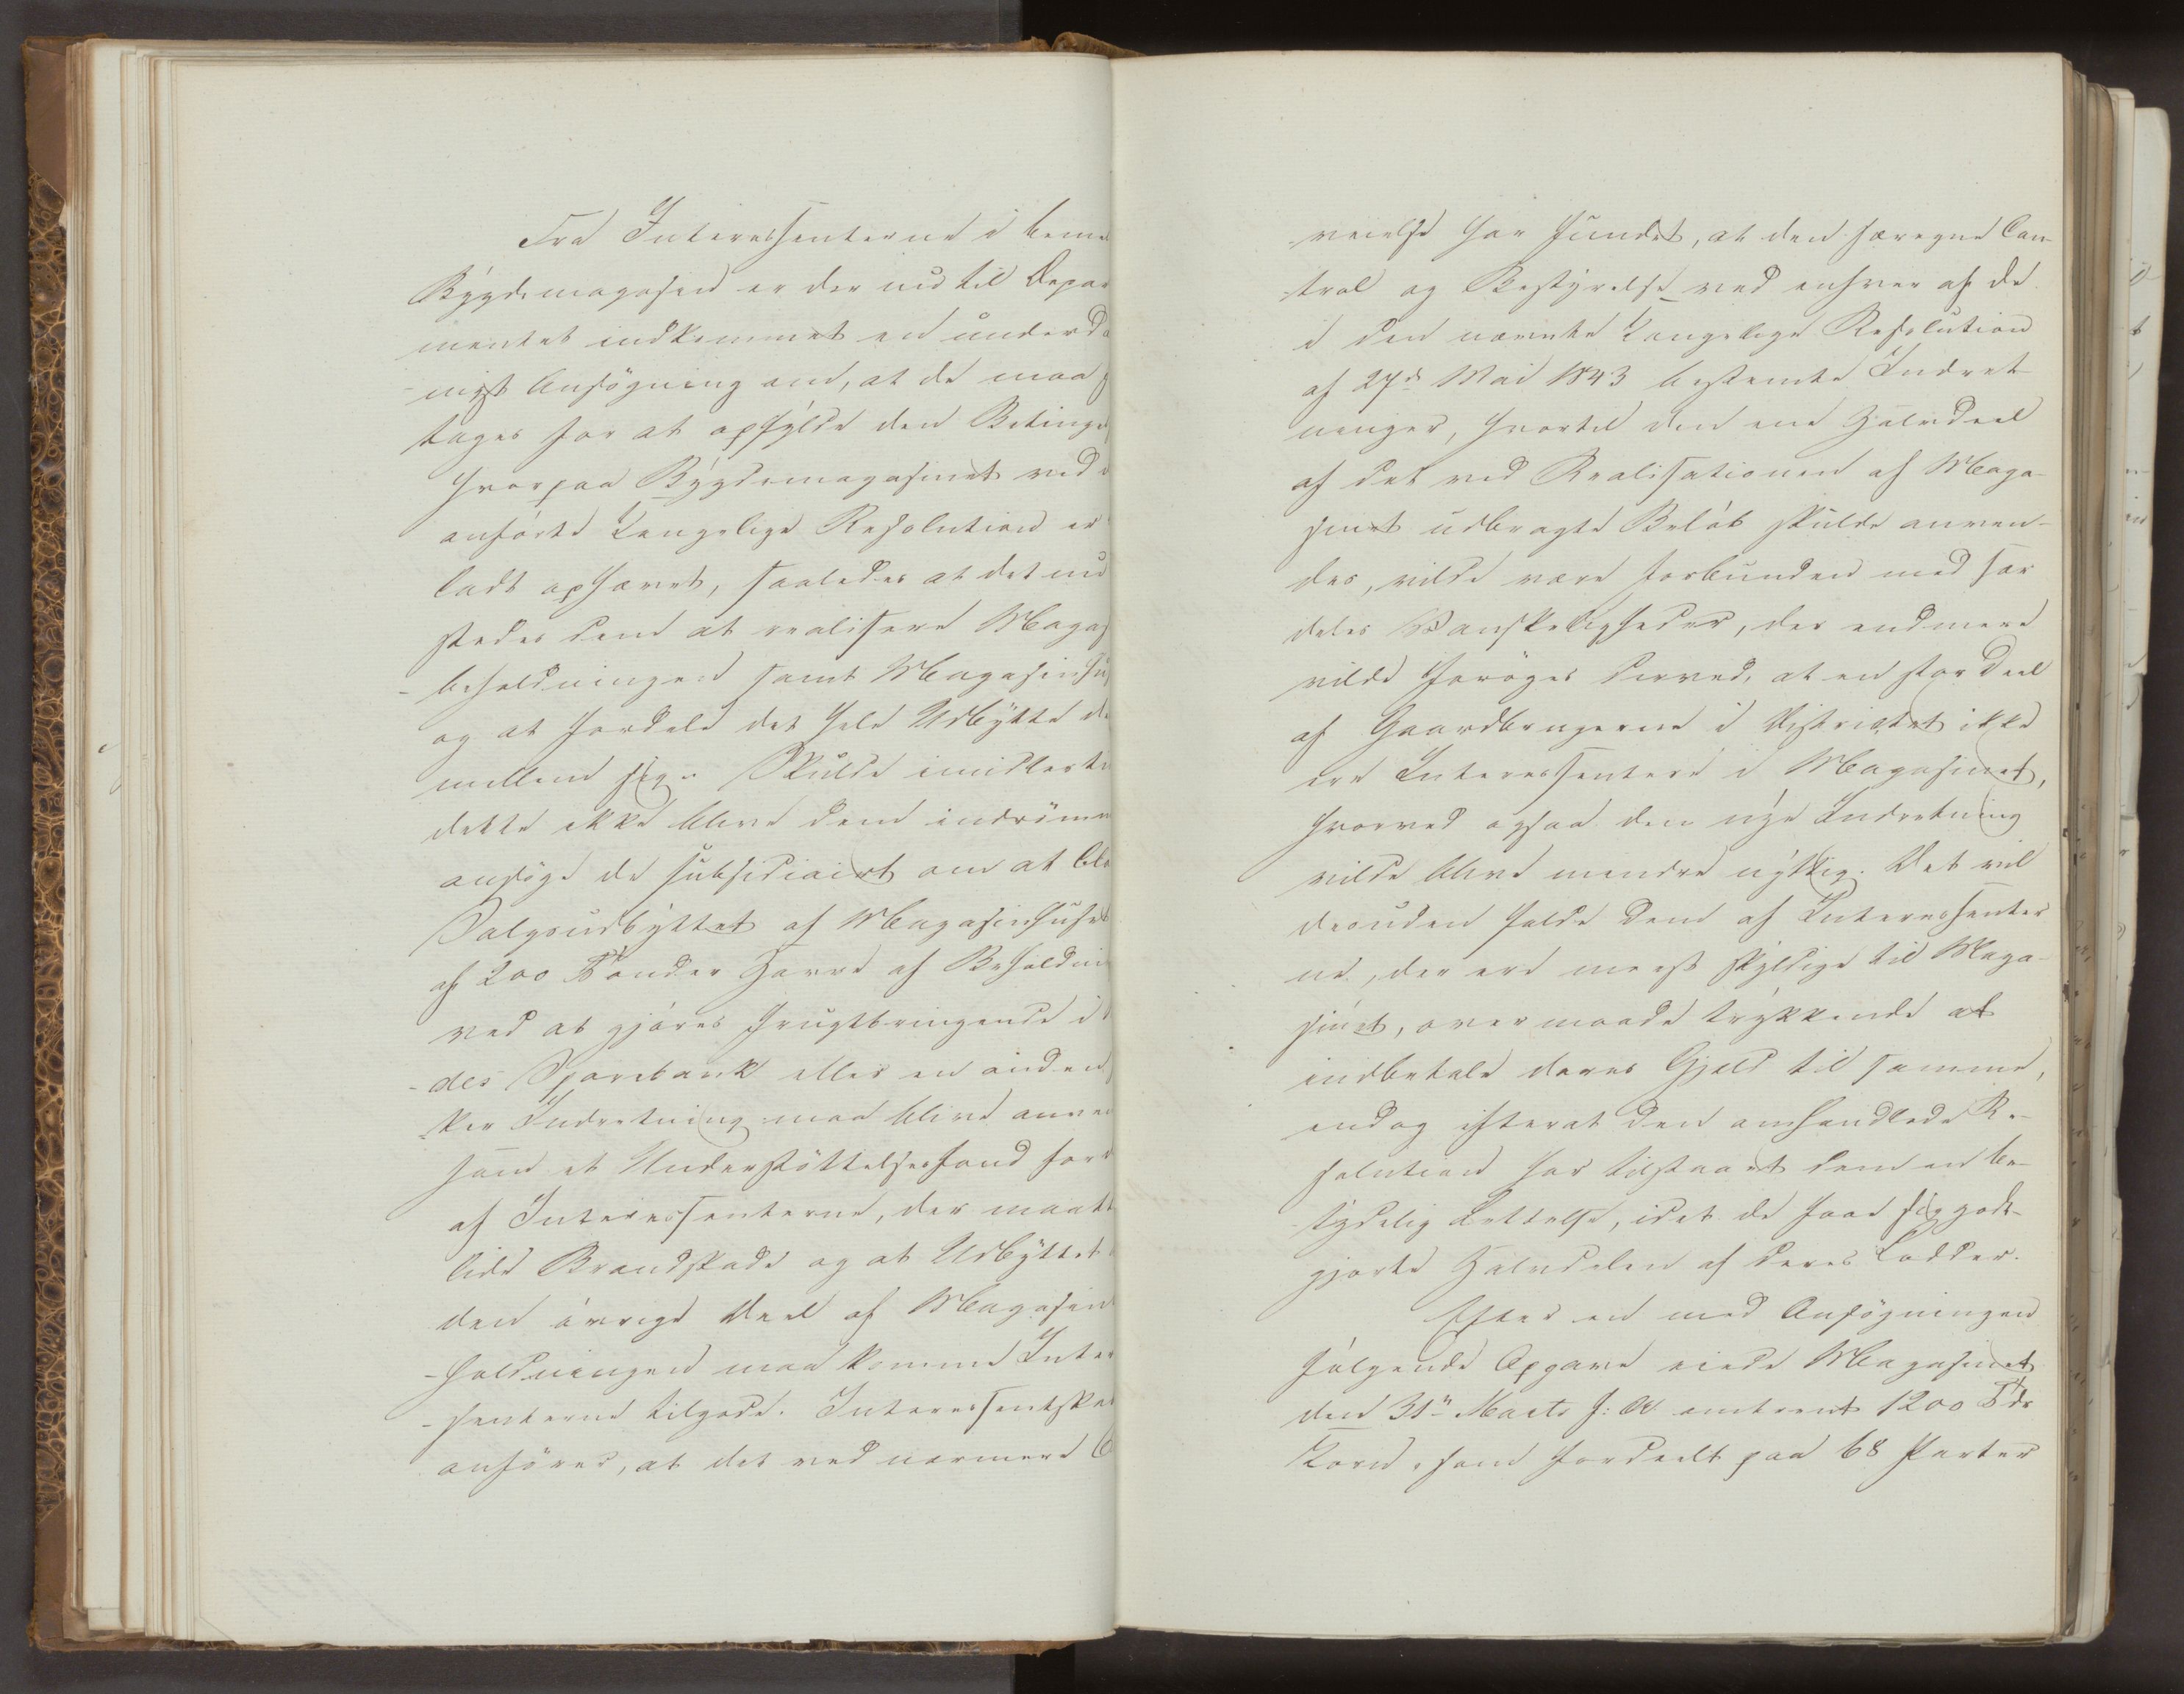 Fra Interessenterne i beme
Bygdemagasin er der nu til Depar
mentet indkommet en underda
nigst Ansøgning om, at de maa f
tages for at opfylde den Beting
hvorpaa Bygdemagasinet ved d
anførte Kongelige Resolution er
ladt ophævet, saaledes at det m
stedes dem at realisere Magas
-beholdningen samt Magasinhu
og at fordele det hele Udbytte d
mellem sig. Skulde imidlerti
dette ikke blive dem indrømm
ansøge de subsidiairt om at
Salgsudbyttet af Magasinhuset
af 200 Tønder Havre af Beholdni
ved at gjøres frugtbringende i
-des Sparebank eller en anden
ker Indretning maa blive anven
som et Understøttelsesfond for
af Interessenterne, der maatt
lide Brandskade og at Udbyttet
den øvrige Deel af Magasin
-holdningen maa komme Inter
-senterne tilgode. Interessentska
anfører, at det ved nærmere
veielse har fundet, at den særegne Con-
trol og Bestyrelse ved enhver af de
i den nævnte Kongelige Resolution
af 27de Mai 1843 bestemte Indret-
ninger, hvortil den ene Halvdeel
af det ved Realisationen af Maga-
sinet udbragte Beløb skulde anven-
des, vilde være forbunden med sær
deles Vanskeligheder, der endmere
vilde forøges derved, at en stor Deel
af Gaardbrugerne i Districtet ikke
ere Interessentere i Magasinet,
hvorved ogsaa den nye Indretning
vilde blive mindre nyttig. Det vil
desuden falde dem af Interessenter
ne, der ere meest skyldige til Maga-
sinet, overmaade trykkende at
indbetale deres Gjeld til samme,
endog efterat den omhandlede Re-
solution har tilstaaet dem en be-
tydelig Lettelse, idet de faae sig godt-
gjorte Halvdelen af deres Lodder.
Efter en med Ansøgningen
følgende Opgave eiede Magasinet
den 31te Marts f: A omtrent 1200 Tdr
Korn, som fordeelt paa 68 Parter